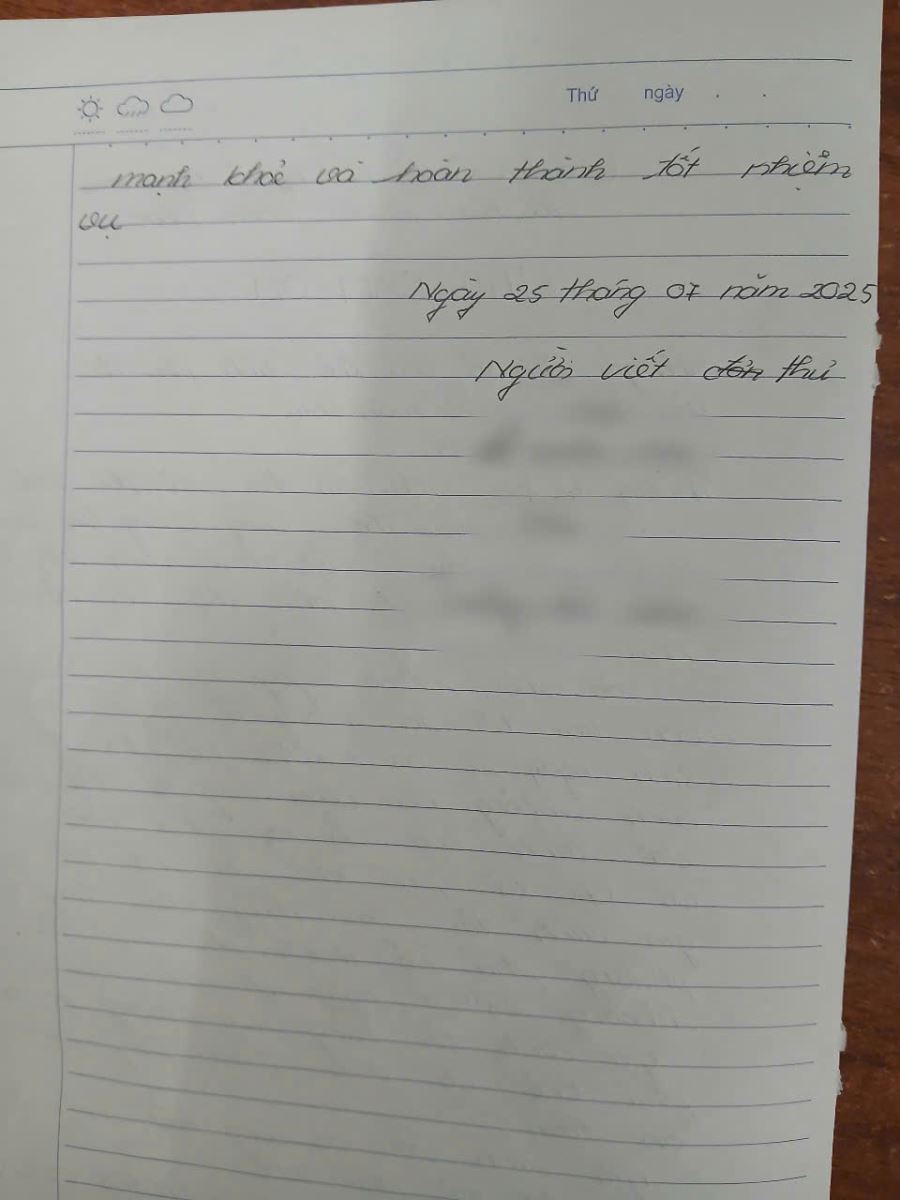 Thứ ngày . .
mạnh khoẻ và hoàn thành tốt nhiệm
vụ
Ngày 25 tháng 07 năm 2025
Người viết đơn thư